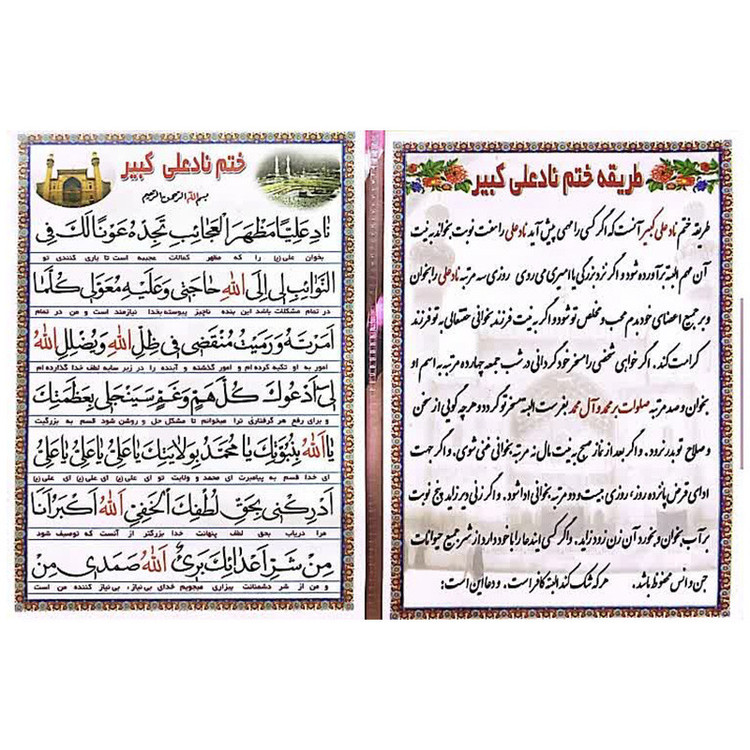 طریقه ختم ناد علی کبیر
طریقه ختم ناد علی کبیر آنست که اگر کسی را مهمی پیش آید ناد علی را هفت نوبت بخواند به نیت
آن مهم البته برآورده شود و اگر نزد بزرگی یا امیری می روی روزی سه مرتبه ناد علی را بخوان
و بر جمیع اعضای خود بدم محب و مخلص تو شود و اگر به نیت فرزند بخوانی حقتعالی به تو فرزند
کرامت کند. اگر خواهی شخصی را مسخر خود گردانی در شب جمعه چهارده مرتبه به اسم او
بخوان و صد مرتبه صلوات بر محمد و آل محمد بفرست البته مسخر تو گردد و هر چه گویی از سخن
و صلاح تو بدر نرود. و اگر بعد از نماز صبح به نیت مال نه مرتبه بخوانی غنی شوی. و اگر جهت
ادای قرض پانزده روز، روزی بیست و دو مرتبه بخوانی ادا شود. و اگر زنی دیر زاید پنج نوبت
بر آب بخوان و بخورد آن زن زود زاید. و اگر کسی این دعا را با خود دارد از شر جمیع حیوانات
جن و انس محفوظ باشد. هر که شک کند البته کافر است. و دعا این است:
ختم ناد علی کبیر
بسم الله الرحمن الرحیم
نادِ عَلِیًّا مَظْهَرَ الْعَجَائِبِ تَجِدْهُ عَوْنًا لَكَ فِی
بخوان علی (ع) را که مظهر کمالات عجیبه است تا یاری کنندی تو
النَّوَائِبِ لِی إِلَی اللهِ حَاجَتِی وَ عَلَیْهِ مُعَوَّلِی كُلَّمَا
در تمام مشکلات باشد این بنده ناچیز پیوسته بخدا نیازمند است و من در تمام
أَمَرْتَهُ وَ رَمَیْتُ مُنْقَضِی فِی ظِلِّ اللهِ وَ یُضْلِلِ اللهُ
امور به او تکیه کرده ام و امور گذشته و آینده را در زیر سایه لطف خدا گذارده ام
لِی أَدْعُوكَ كُلَّ هَمٍّ وَ غَمٍّ سَیَنْجَلِی بِعَظَمَتِكَ
و برای رفع هر گرفتاری ترا میخوانم تا مشکل حل و روشن شود قسم به بزرگیت
یَا اَللهُ بِنُبُوَّتِكَ یَا مُحَمَّدُ بِوِلَایَتِكَ یَا عَلِیُّ یَا عَلِیُّ یَا عَلِیُّ
ای خدا قسم به پیامبرت ای محمد و ولایت تو ای علی (ع) ای علی (ع) ای علی
أَدْرِكْنِی بِحَقِّ لُطْفِكَ الْخَفِیِّ اَللهُ أَكْبَرُ أَنَا
مرا دریاب بحق لطف پنهانت خدا بزرگتر از آنست که توصیف شود
مِنْ شَرِّ أَعْدَائِكَ بَرِیءٌ اَللهُ صَمَدِی مِنْ
و من از شر دشمنانت بیزاری میجویم خدای بی نیاز، بی نیاز کننده من است